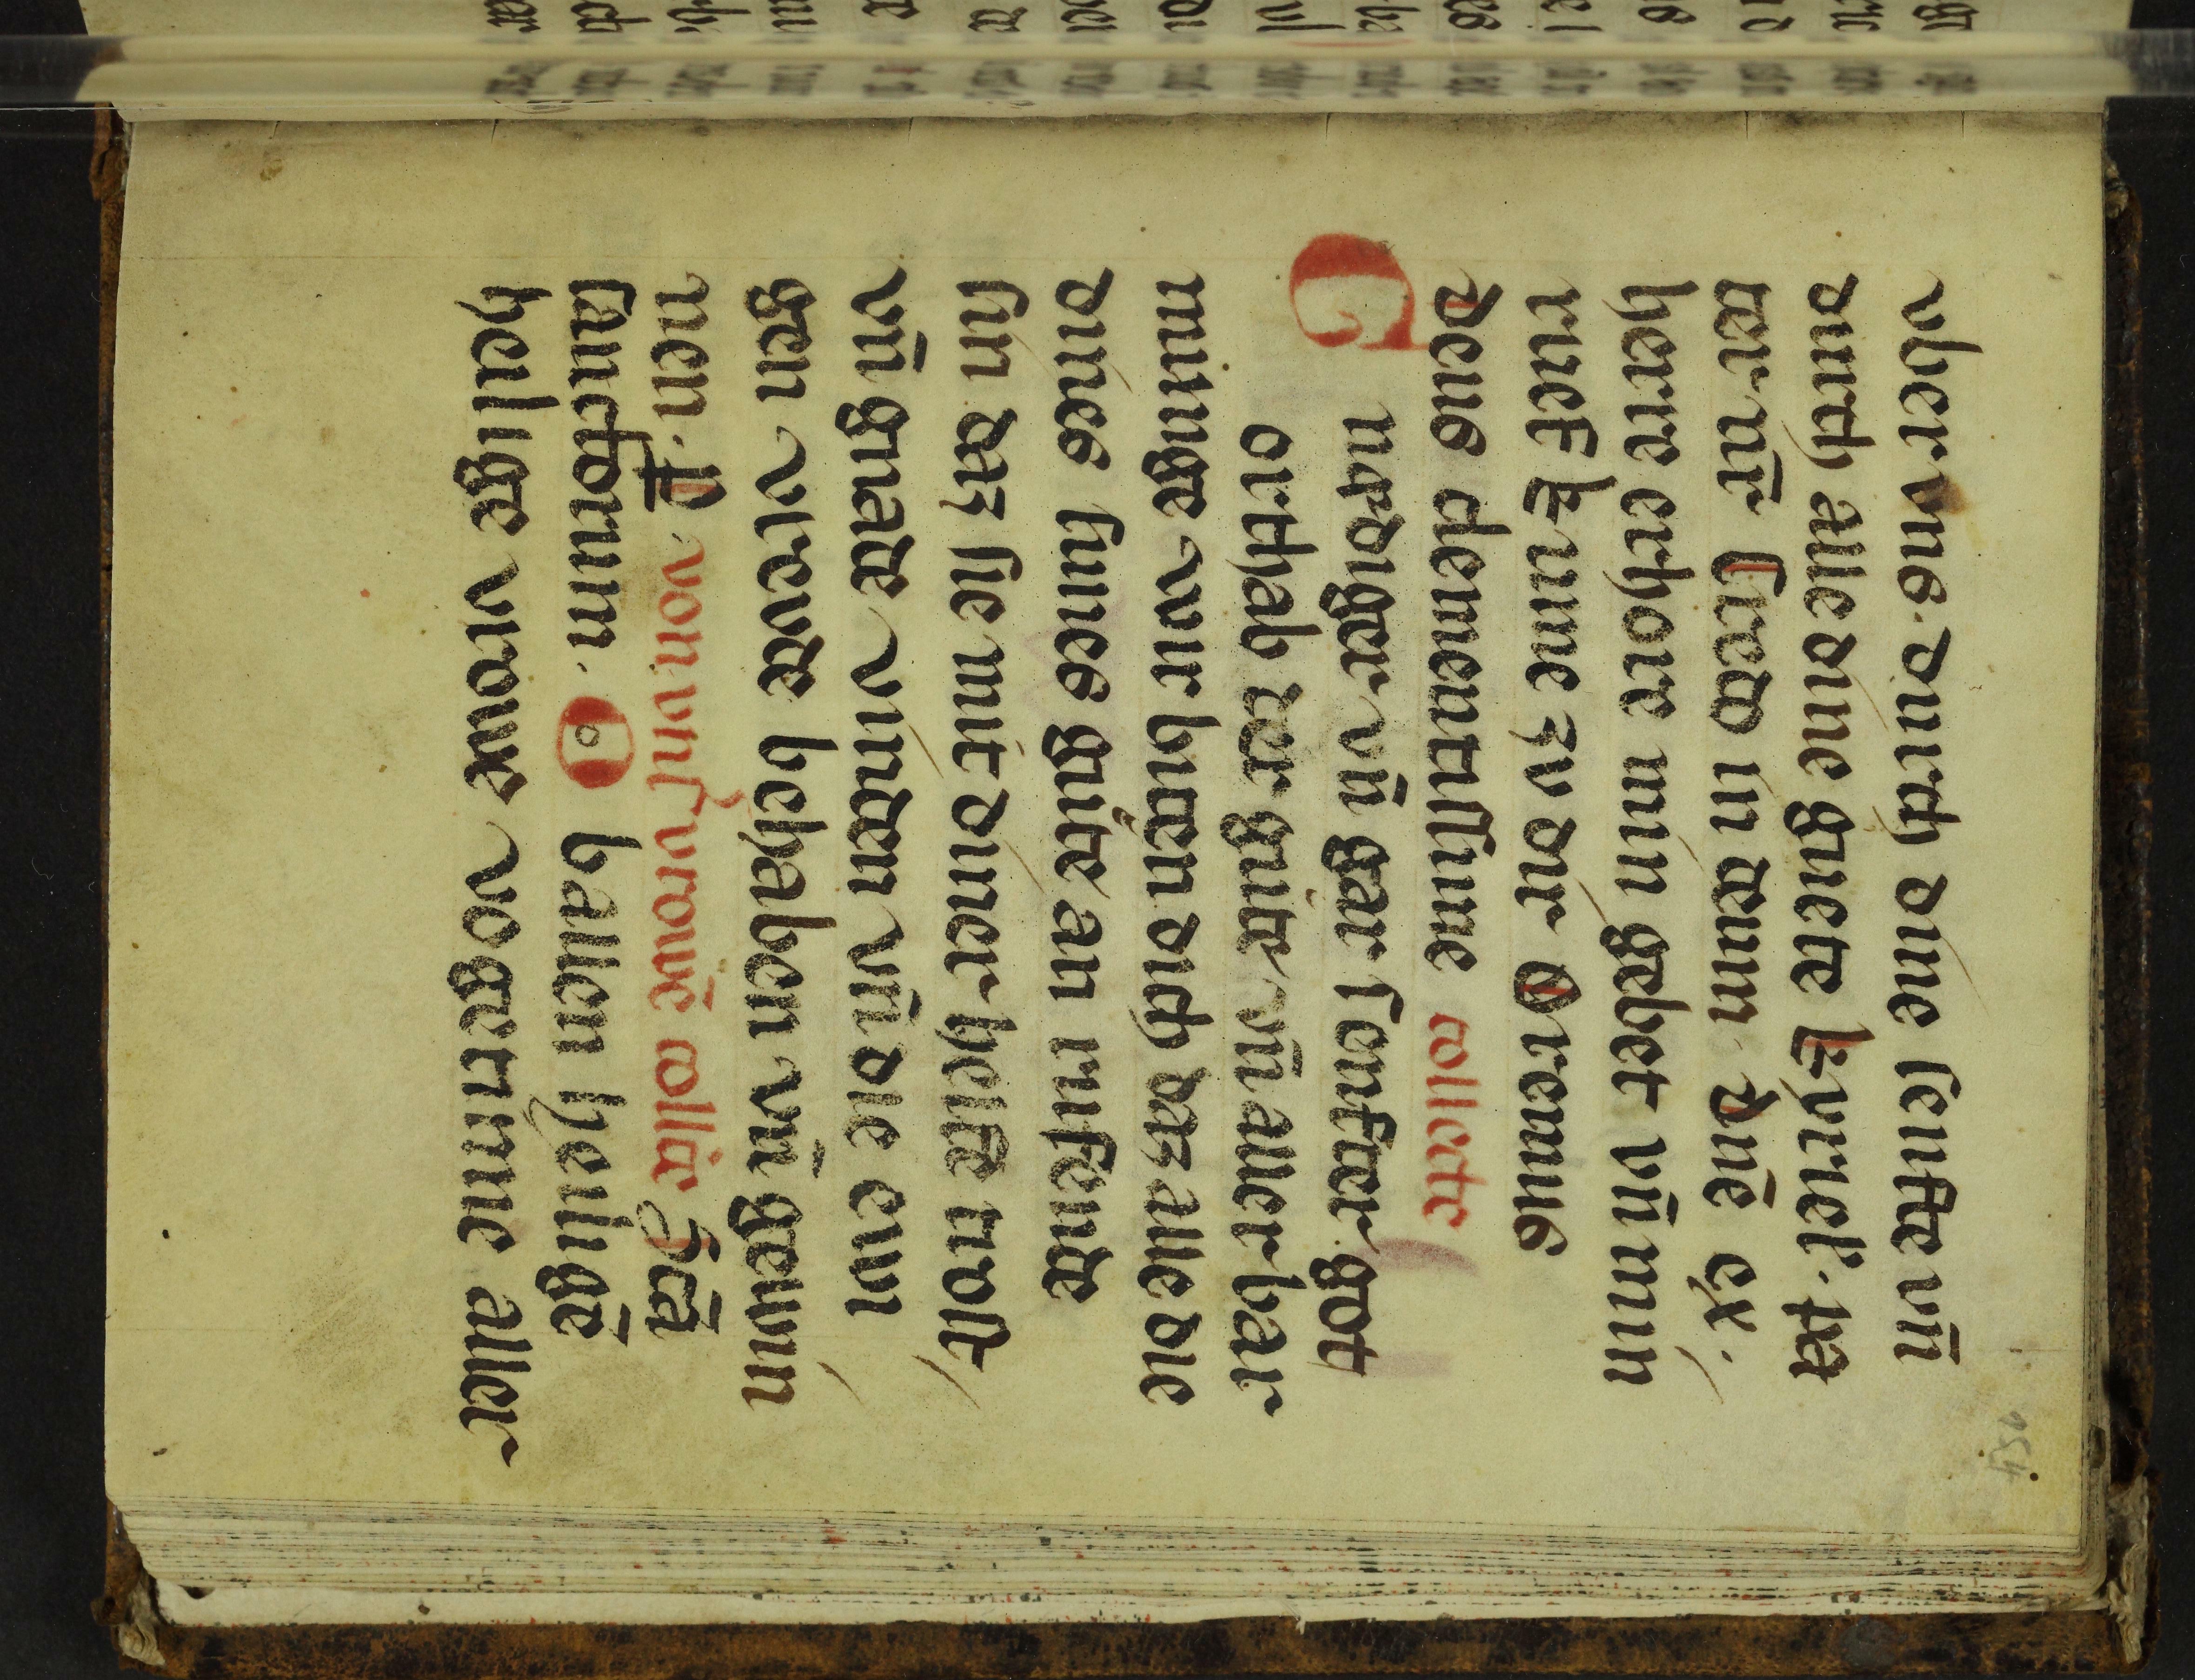 vber vns. durch dine senfte vn̄
durch alle dine guete kyriel. pat
ter nr̄. Credo in deum. Dn̄e ex.
herre erhore min gebet vn̄ min
ruef kume zv dir. Oremus
Deus clementissime collecte
Gnediger vn̄ gar senfter got
orthab der güte vn̄ aller bar
munge wir bitten dich daz alle die
dines sunes güte an ruffende
sin daz sie mit diner helfe
vn̄ gnade vinden vn̄ die ewi
gen vrevde behaben vn̄ gewin
nen. von vnsvrowē colla Sc̄a
sanctorum. O ballen heiligē
heilige vrowe vogettinne aller